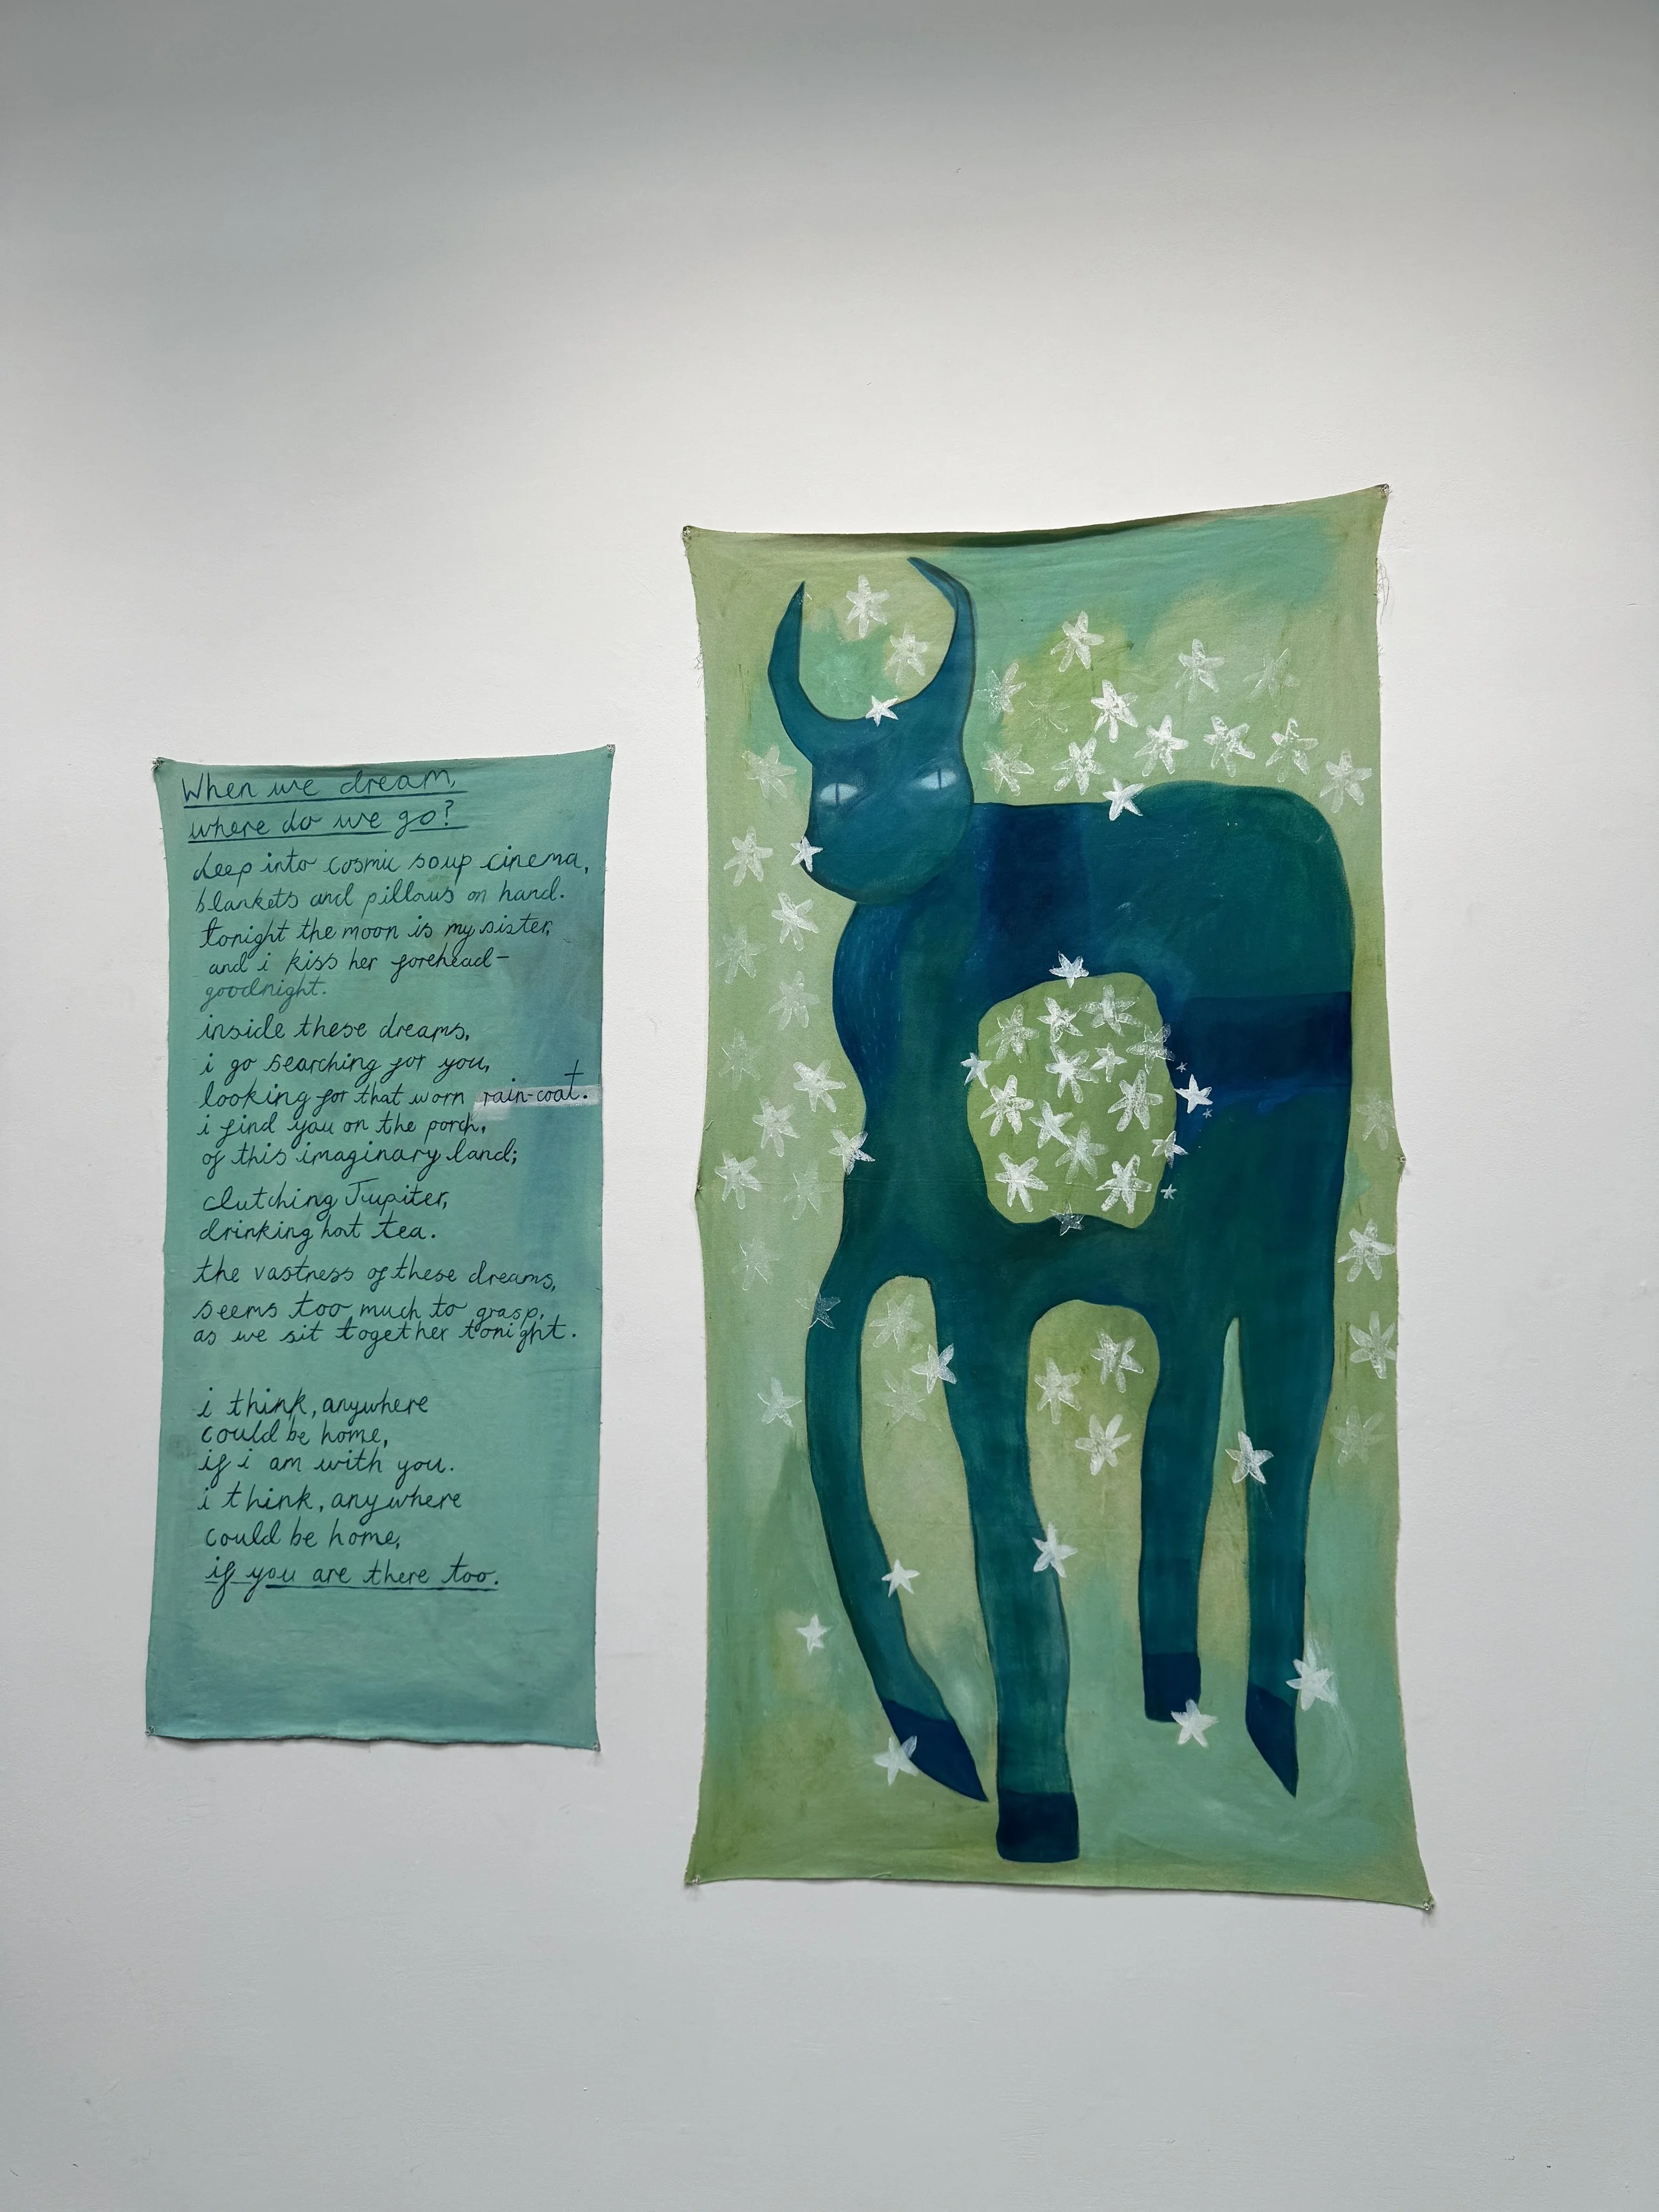 When we dream,
where do we go?
deep into cosmic soup cinema,
blankets and pillows on hand.
tonight the moon is my sister,
and i kiss her forehead-
goodnight.
inside these dreams,
i go searching for you,
looking for that worn rain-coat.
i find you on the porch,
of this imaginary land;
clutching Jupiter,
drinking hot tea.
the vastness of these dreams,
seems too much to grasp,
as we sit together tonight.
i think, anywhere
could be home,
if i am with you.
i think, anywhere
could be home,
if you are there too.